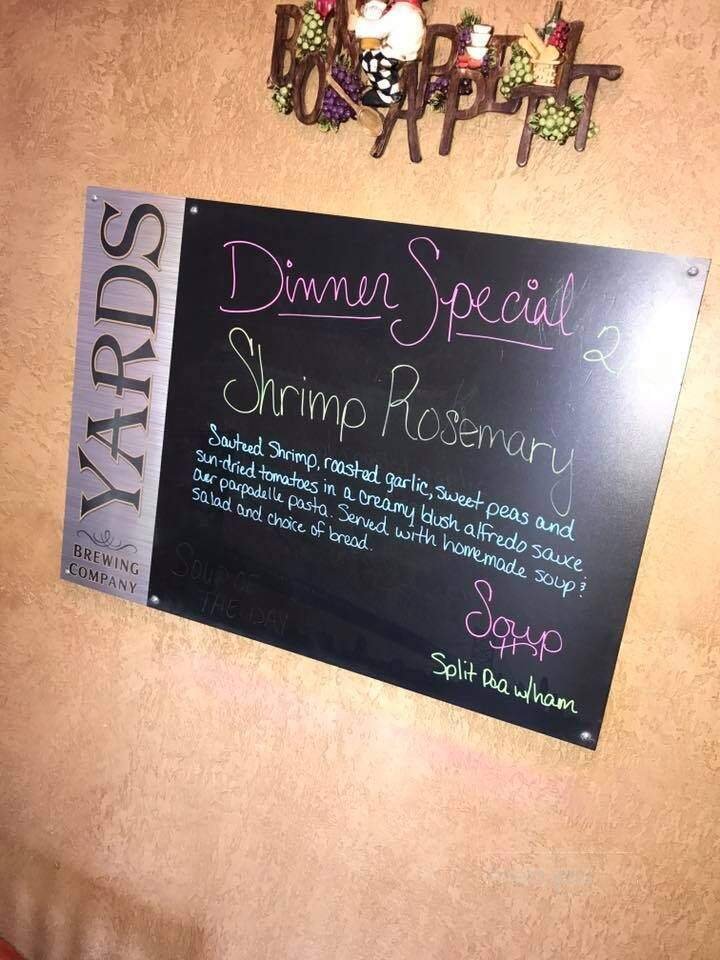 BON
APPETIT
YARDS
BREWING
COMPANY
Dinner Special
2
Shrimp Rosemary
Sauteed Shrimp, roasted garlic, sweet peas and
sun-dried tomatoes in a creamy blush alfredo sauce
over parpadelle pasta. Served with homemade soup &
salad and choice of bread.
SOUP OF
THE DAY
Soup
Split Pea w/ham